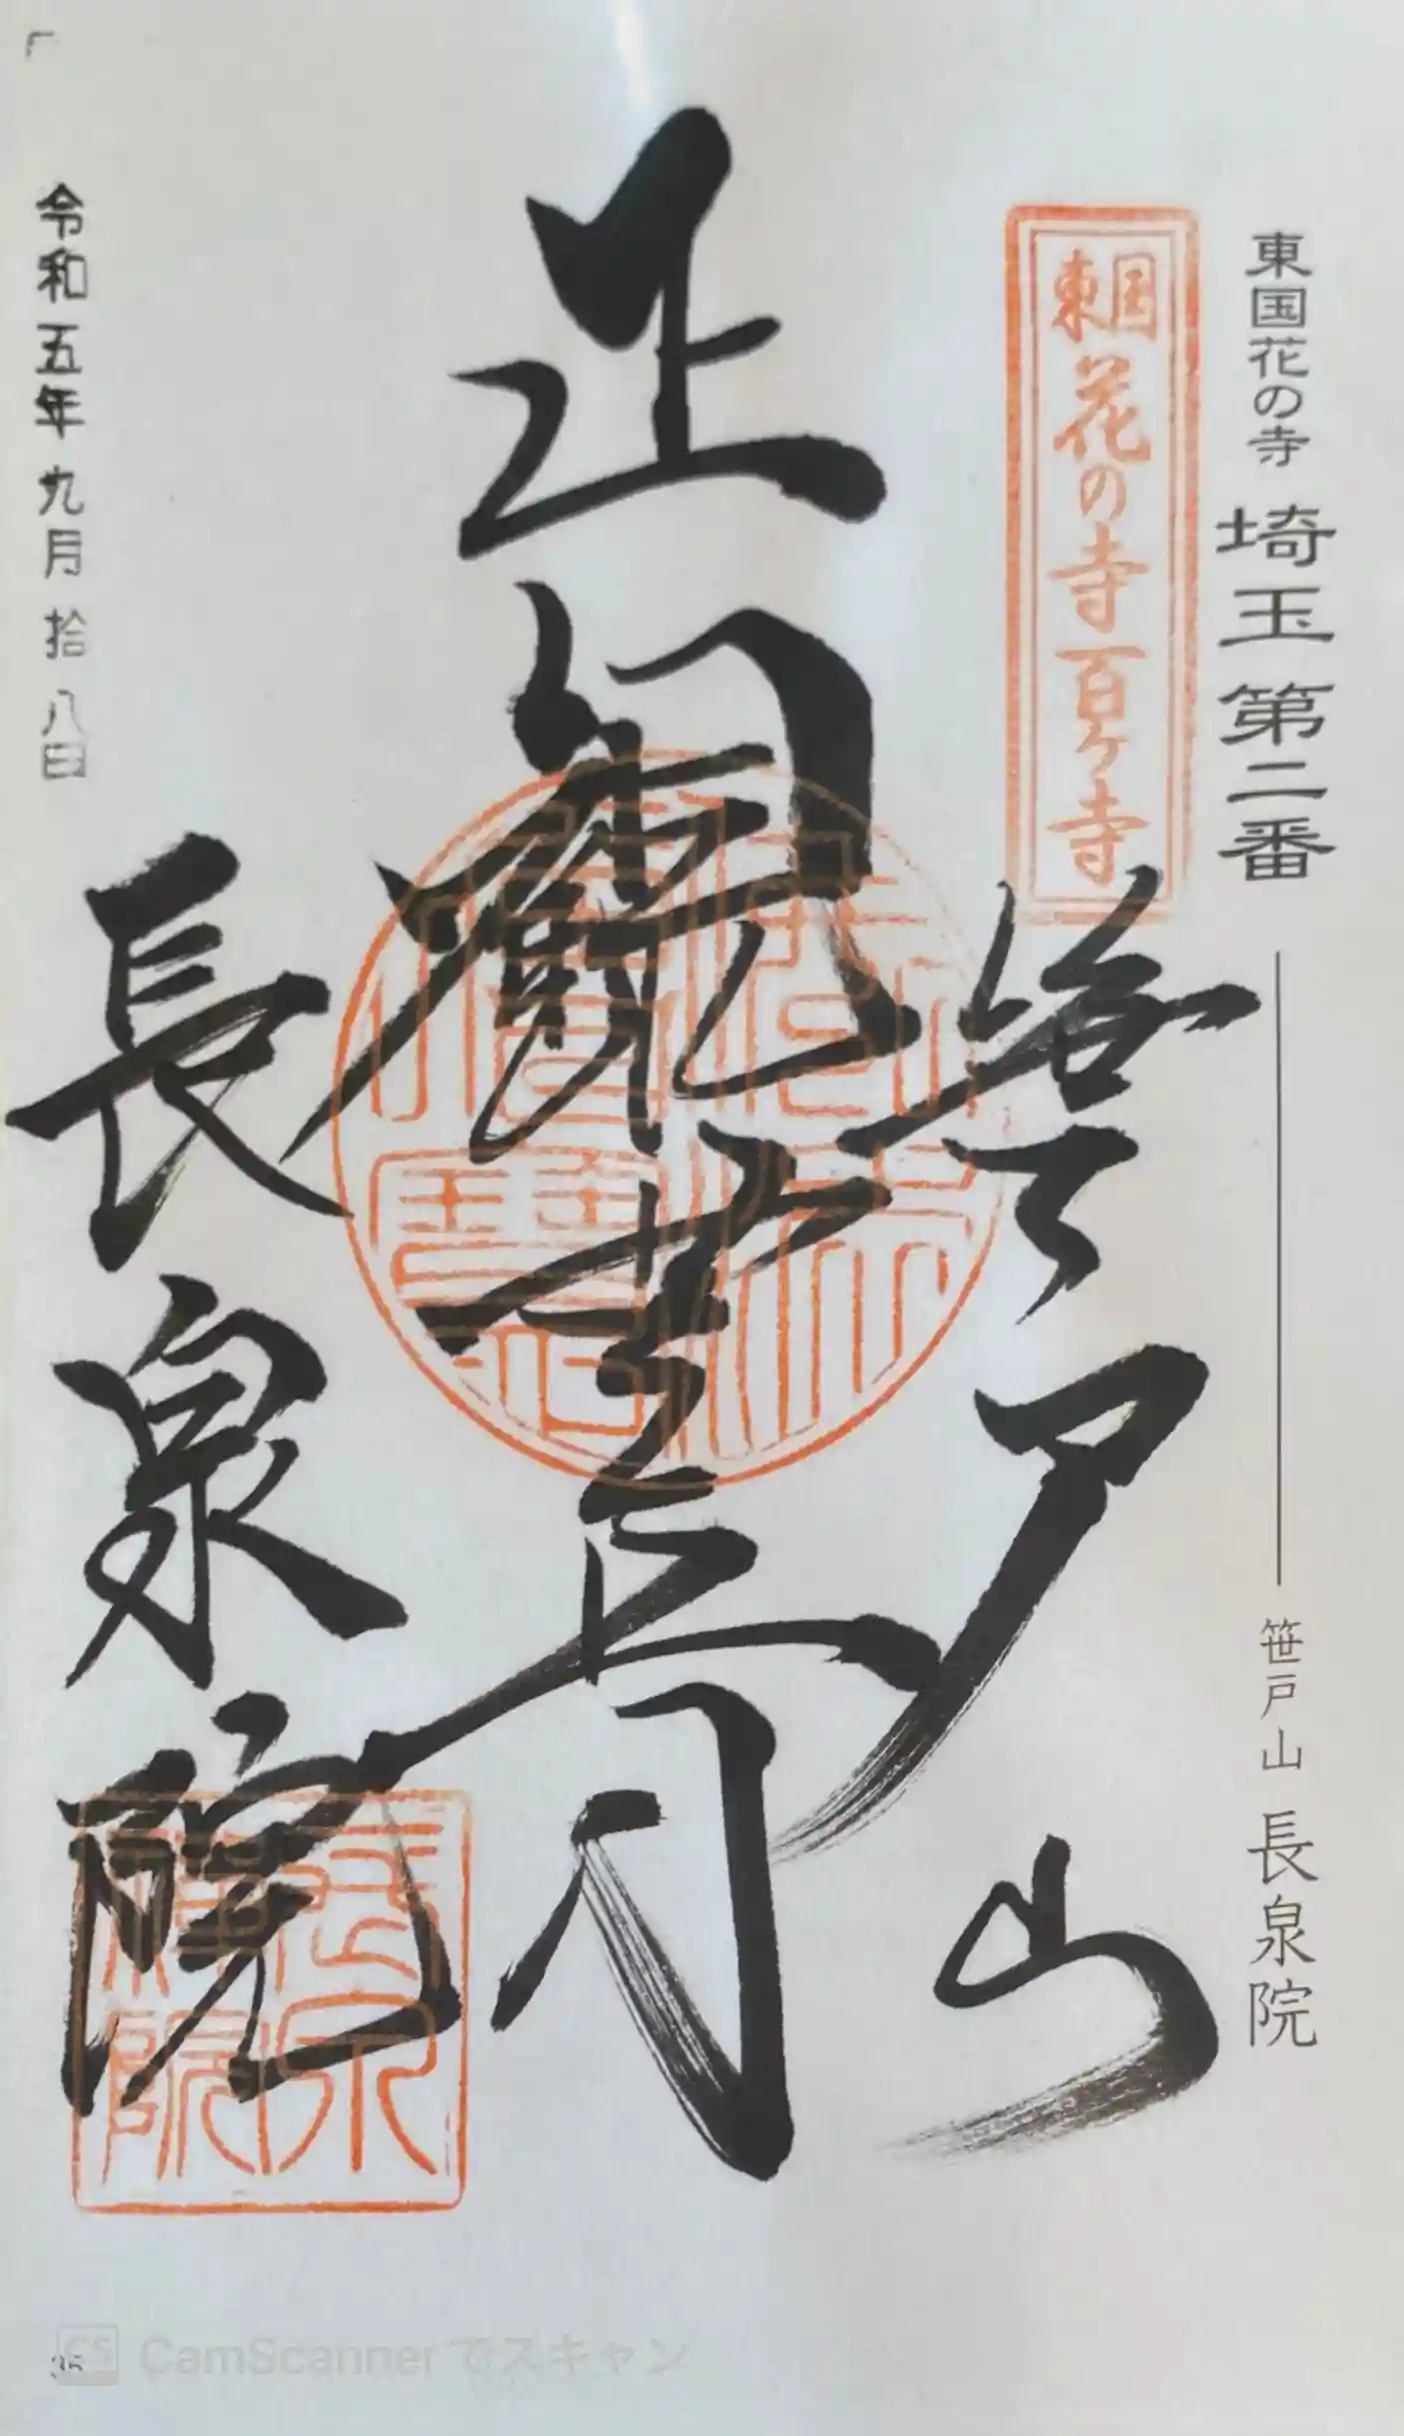 東国花の寺 埼玉第二番
笹戸山 長泉院
東国花の寺百ヶ寺
笹戸山
正觀世音
長泉院
令和五年九月拾八日
35
CS CamScanner でスキャン